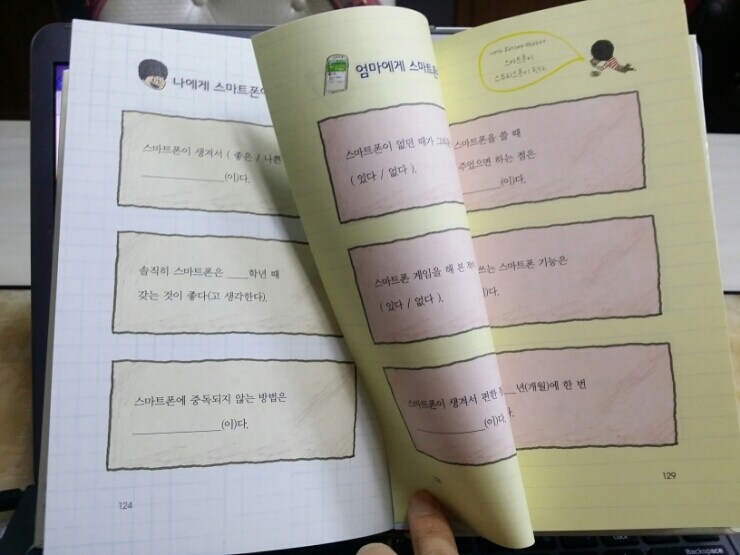 나에게 스마트폰
스마트폰이 생겨서 ( 좋은 / 나쁜
(이)다.
솔직히 스마트폰은 ____학년 때
갖는 것이 좋다(고 생각한다).
스마트폰에 중독되지 않는 방법은
(이)다.
124
엄마에게 스마트폰
스마트폰이 없던 때가 그리
( 있다 / 없다 ).
스마트폰 게임을 해 본 적이
( 있다 / 없다 ).
스마트폰이 생겨서 편한
(이)다.
스마트폰이
스마트폰을 쓸 때
주었으면 하는 점은
(이)다.
쓰는 스마트폰 기능은
)다.
년(개월)에 한 번
129
Backspace